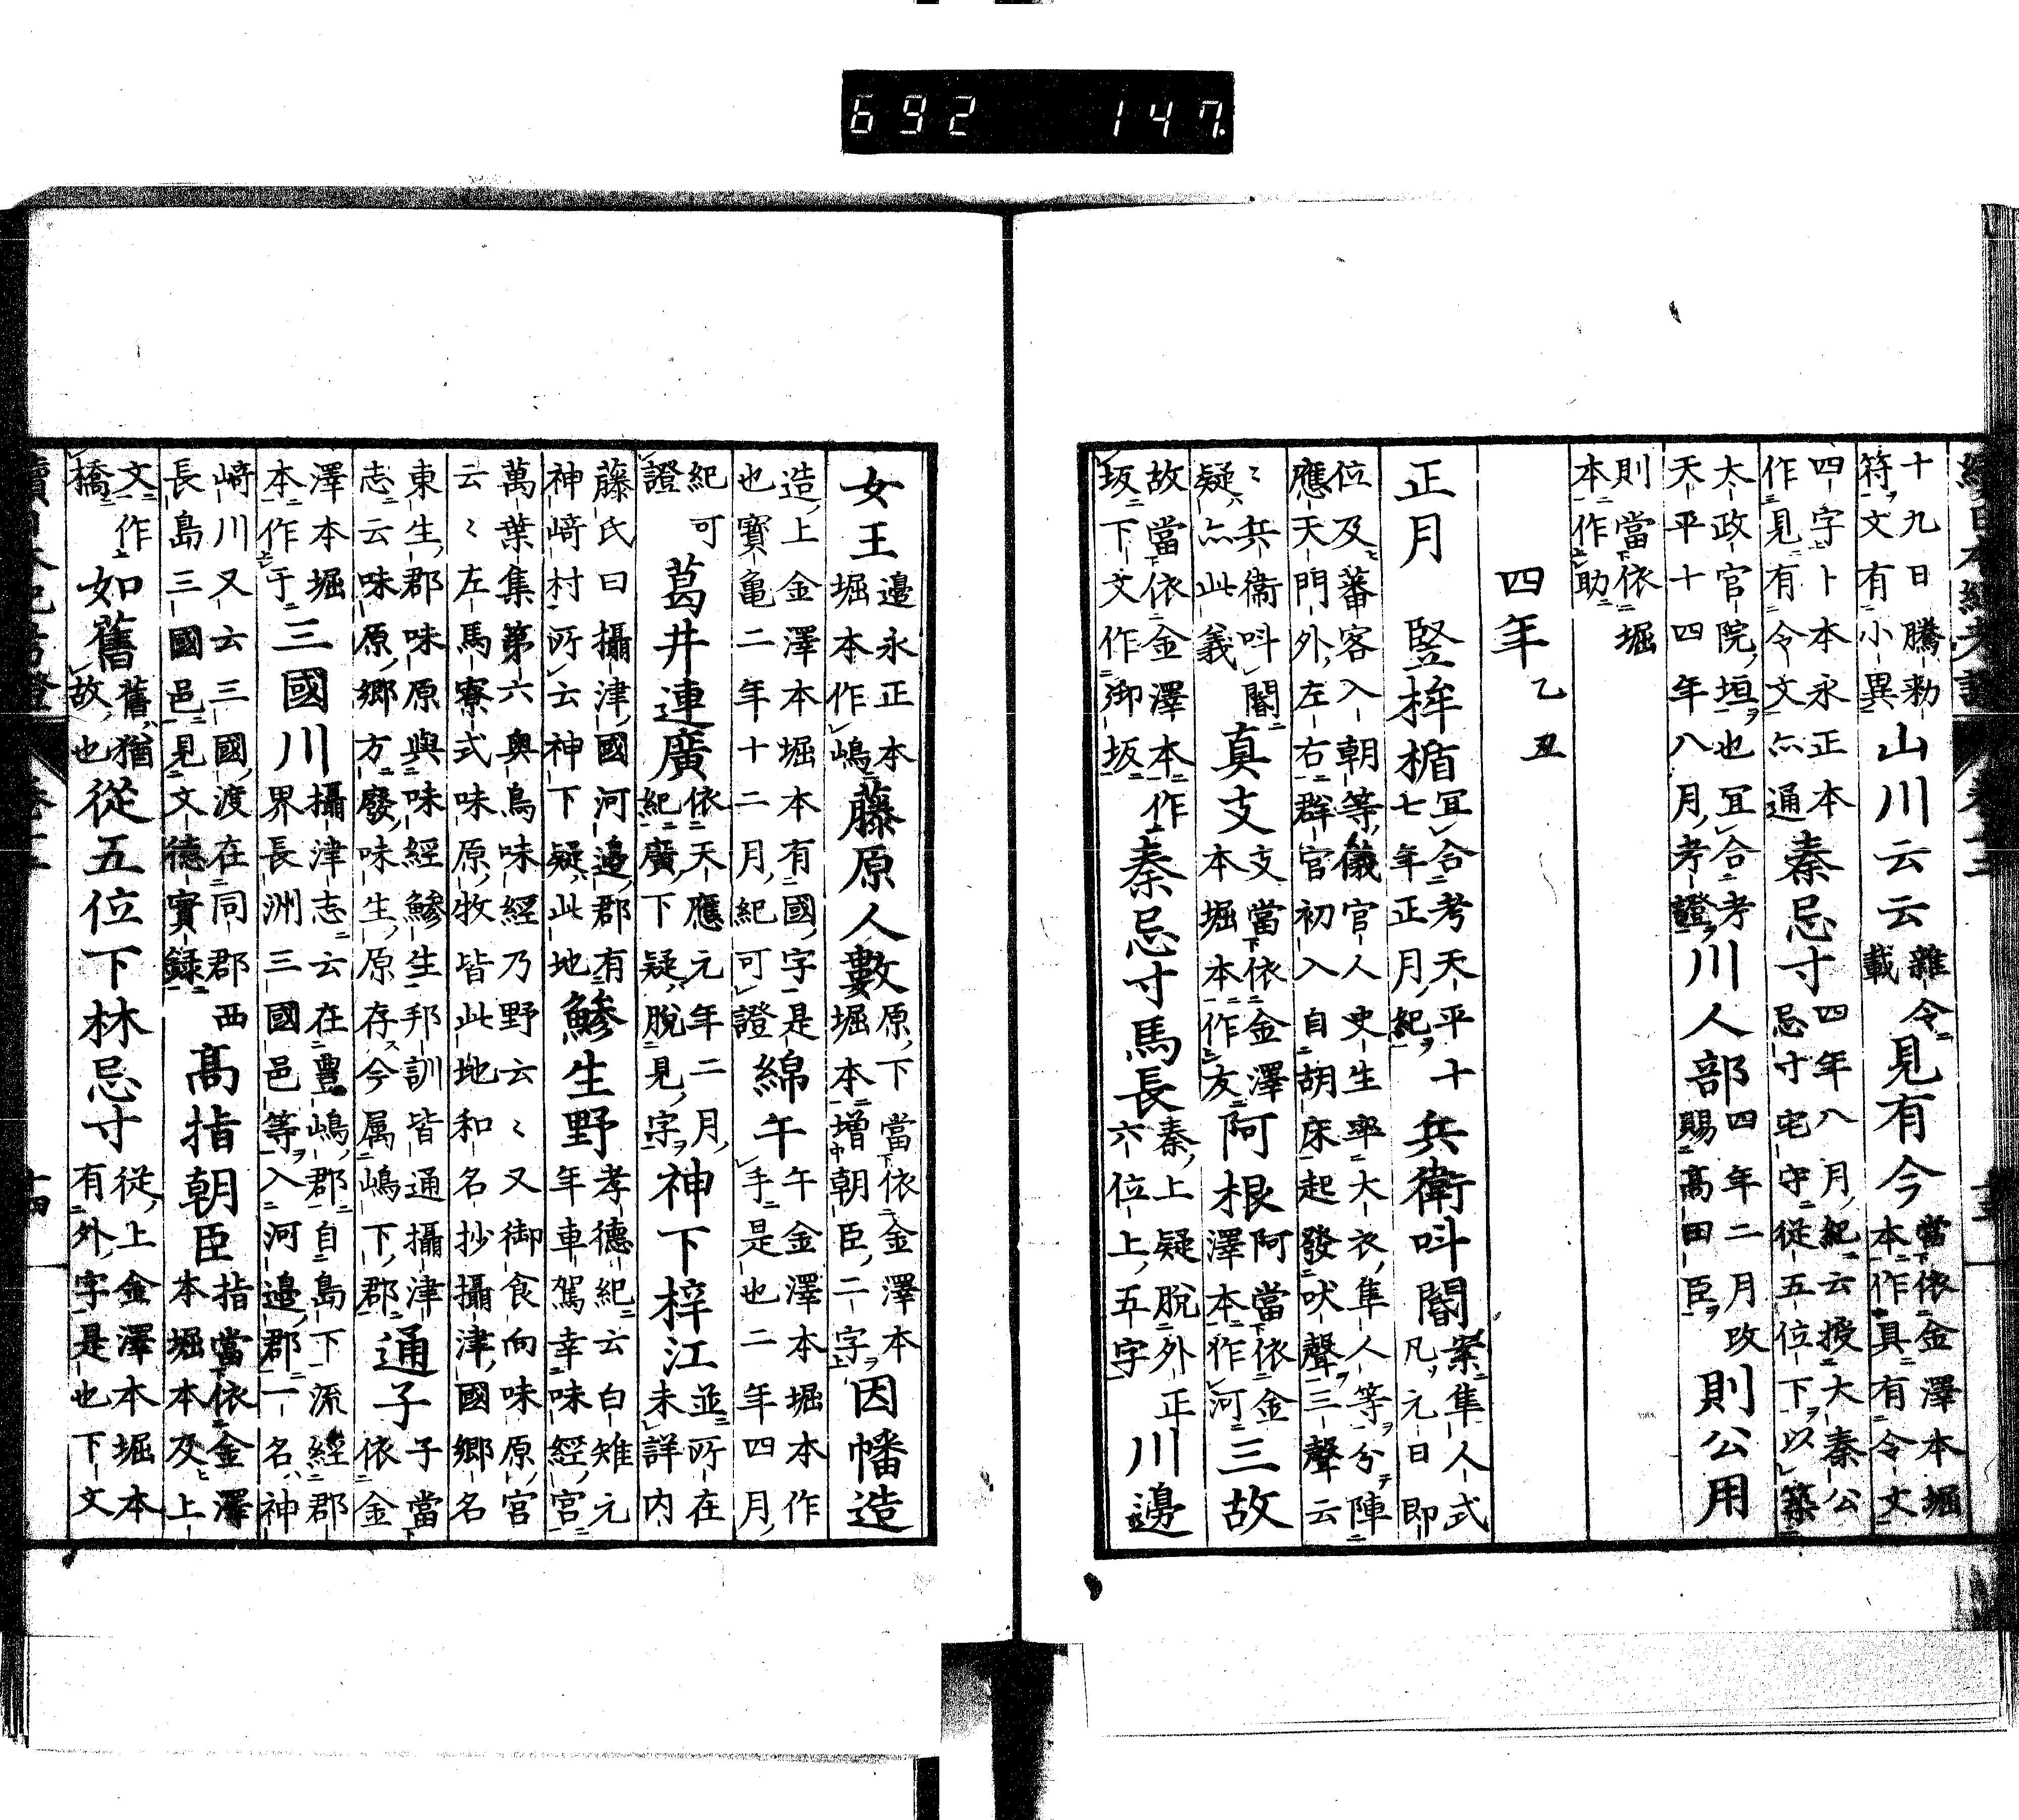 692 147
十九日騰勅
符文有小異
山川云云
雜令
載
見有今
當依金澤本堀
本作具有令文
四字卜本永正本
作見有令文亦通
秦忌寸
四年八月紀云授大秦公
忌寸宅守從五位下以築
太政官院垣也冝合考
天平十四年八月考證
川人部
四年二月攺
賜髙田臣
則公用
則當依堀
本作助
四年乙丑
正月 竪桙楯
冝合考天平十
七年正月紀
兵衛呌閽
案隼人式
凡元日即
位及蕃客入朝等儀官人史生率大衣隼人等分陣
應天門外左右群官初入自胡床起發吠聲三聲云
〻兵衛呌閽
疑亦此義
真支
支當依金澤
本堀本作友
阿根
阿當依金
澤本作河
三故
故當依金澤本作
坂下文作御坂
秦忌寸馬長
秦上疑脫外正
六位上五字
川邊
女王
邉永正本
堀本作嶋
藤原人數
原下當依金澤本
堀本增朝臣二字
因幡造
造上金澤本堀本有國字是
也寳亀二年十二月紀可證
綿午
午金澤本堀本作
手是也二年四月
紀可
證
葛井連廣
依天應元年二月
紀廣下疑脫見字
神下梓江
並所在
未詳内
藤氏曰攝津國河邉郡有
神﨑村所云神下疑此地
鰺生野
孝德紀云白雉元
年車駕幸味經宮
萬葉集第六奥鳥味經乃野云〻又御食向味原宮
云〻左馬寮式味原牧皆此地和名抄攝津國郷名
東生郡味原與味經鰺生邦訓皆通攝津
志云味原郷方廢味生原存今属嶋下郡
通子
子當
依金
澤本堀
本作于
三國川
攝津志云在豊嶋郡自島下流經郡
界長洲三國邑等入河邉郡一名神
﨑川又云三國渡在同郡西
長島三國邑見文德實録
髙指朝臣
指當依金澤
本堀本及上
文作
橋
如舊
舊猶
故也
從五位下林忌寸
從上金澤本堀本
有外字是也下文